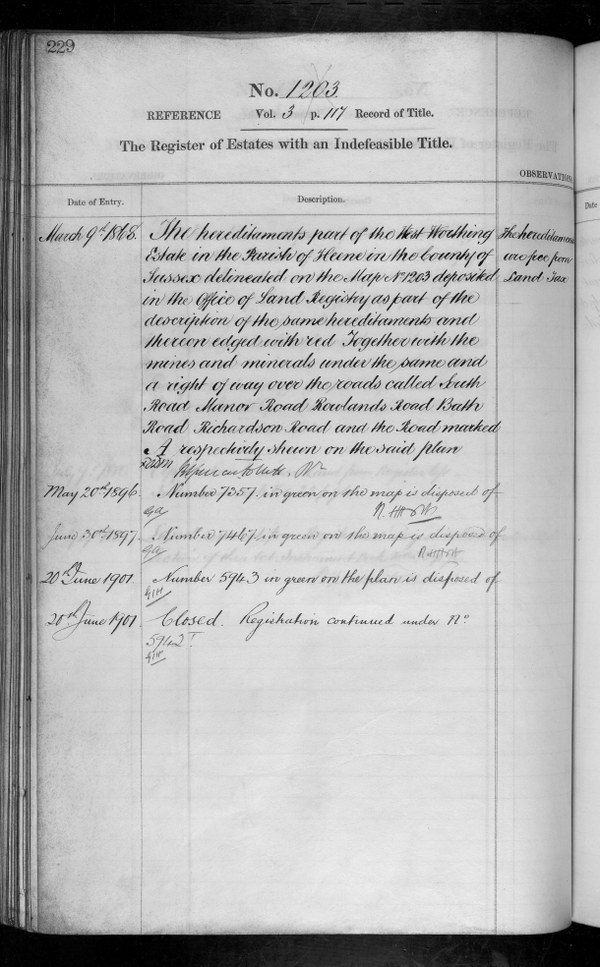 229
No. 1203
REFERENCE Vol. 3 p. 117 Record of Title.
The Register of Estates with an Indefeasible Title.
OBSERVATIONS
Date of Entry. Description.
Date
March 9th 1868. The hereditaments part of the West Worthing
Estate in the Parish of Heene in the County of
Sussex delineated on the Map No 1203 deposited
in the Office of Land Registry as part of the
description of the same hereditaments and
thereon edged with red Together with the
mines and minerals under the same and
a right of way over the roads called South
Road Manor Road Rowlands Road Bath
Road Richardson Road and the Road marked
A respectively shewn on the said plan
The hereditaments
are free from
Land Tax
May 20th 1896. Number 7357 in green on the map is disposed of
June 30th 1897. Number 7467 in green on the map is disposed of
20th June 1901. Number 5943 in green on the plan is disposed of
20th June 1901. Closed. Registration continued under No.
5942